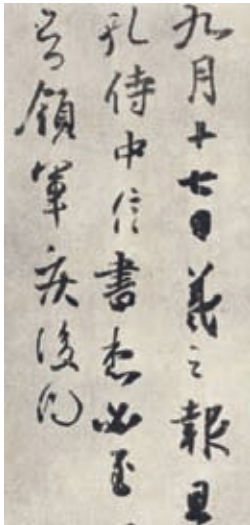 九月十七日羲之報且
孔侍中信書想必至
知領軍疾後問